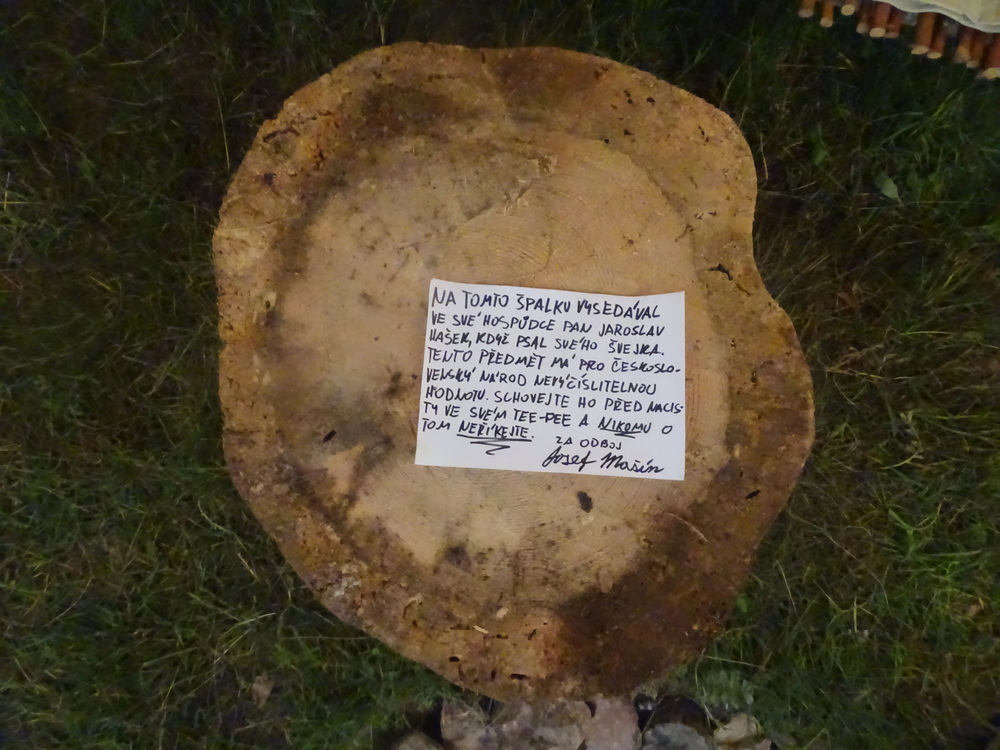 NA TOMTO ŠPALKU VYSEDÁVAL
VE SVÉ HOSPŮDCE PAN JAROSLAV
HAŠEK, KDYŽ PSAL SVÉHO ŠVEJKA.
TENTO PŘEDMĚT MÁ PRO ČESKOSLO-
VENSKÝ NÁROD NEVYČÍSLITELNOU
HODNOTU. SCHOVEJTE HO PŘED NACIS-
TY VE SVÉM TEE-PEE A NIKOMU O
TOM NEŘÍKEJTE.
ZA ODBOJ
Josef Mašín